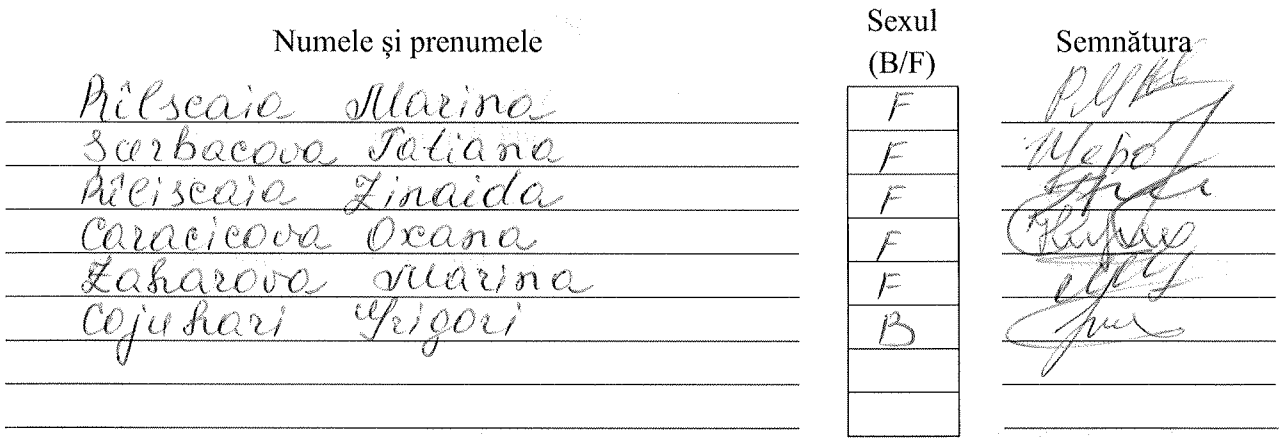 Numele și prenumele Sexul (B/F) Semnătura
Rîlscaia Marina F
Scerbacova Tatiana F
Rîliscaia Zinaida F
Caracicova Oxana F
Zaharova Marina F
Cojuhari Grigori B